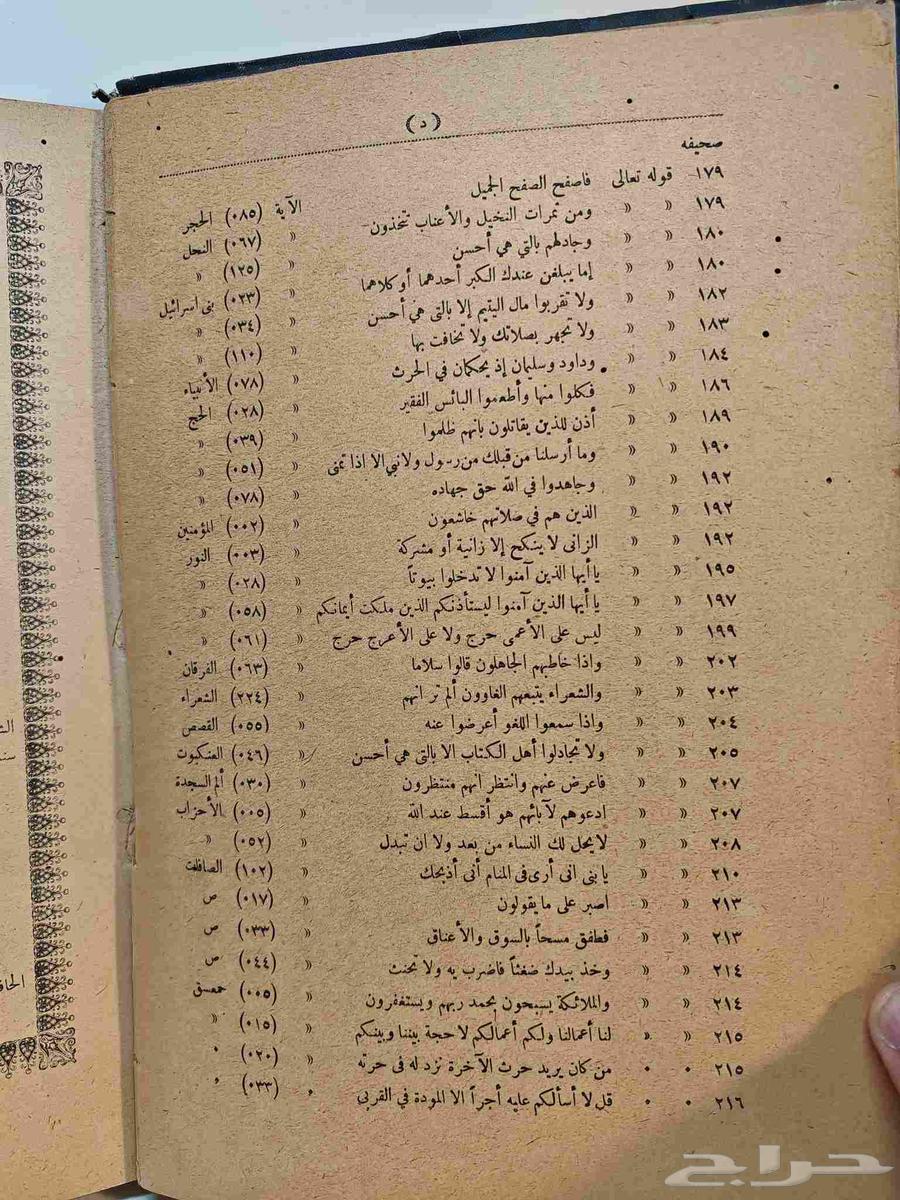 (د)
صحيفه
١٧٩ قوله تعالى فاصفح الصفح الجميل الآية (٠٨٥) الحجر
١٧٩ « « ومن ثمرات النخيل والأعناب تتخذون « (٠٦٧) النحل
١٨٠ « « وجادلهم بالتي هي أحسن « (١٢٥) «
١٨٠ « « إما يبلغن عندك الكبر أحدهما أو كلاهما « (٠٢٣) بنى اسرائيل
١٨٢ « « ولا تقربوا مال اليتيم إلا بالتى هي أحسن « (٠٣٤) «
١٨٣ « « ولا تجهر بصلاتك ولا تخافت بها « (١١٠) «
١٨٤ « « وداود وسليمان إذ يحكمان في الحرث « (٠٧٨) الأنبياء
١٨٦ « « فكلوا منها وأطعموا البائس الفقير « (٠٢٨) الحج
١٨٩ « « أذن للذين يقاتلون بانهم ظلموا « (٠٣٩) «
١٩٠ « « وما أرسلنا من قبلك من رسول ولا نبي الا اذا تمنى « (٠٥١) «
١٩٢ « « وجاهدوا في الله حق جهاده « (٠٧٨) «
١٩٢ « « الذين هم في صلاتهم خاشعون « (٠٠٢) المؤمنين
١٩٢ « « الزانى لا ينكح إلا زانية أو مشركة « (٠٠٣) النور
١٩٥ « « يا أيها الذين آمنوا لا تدخلوا بيوتاً « (٠٢٨) «
١٩٧ « « يا أيها الذين آمنوا ليستأذنكم الذين ملكت أيمانكم « (٠٥٨) «
١٩٩ « « ليس على الأعمى حرج ولا على الأعرج حرج « (٠٦١) «
٢٠٢ « « واذا خاطبهم الجاهلون قالوا سلاما « (٠٦٣) الفرقان
٢٠٣ « « والشعراء يتبعهم الغاوون ألم تر انهم « (٢٢٤) الشعراء
٢٠٤ « « واذا سمعوا اللغو أعرضوا عنه « (٠٥٥) القصص
٢٠٥ « « ولا تجادلوا أهل الكتاب الا بالتى هي أحسن « (٠٤٦) العنكبوت
٢٠٧ « « فاعرض عنهم وانتظر انهم منتظرون « (٠٣٠) ألم السجدة
٢٠٧ « « ادعوهم لآبائهم هو أقسط عند الله « (٠٠٥) الأحزاب
٢٠٨ « « لا يحل لك النساء من بعد ولا ان تبدل « (٠٥٢) «
٢١٠ « « يا بنى انى أرى فى المنام أنى أذبحك « (١٠٢) الصافات
٢١٣ « « اصبر على ما يقولون « (٠١٧) ص
٢١٣ « « فطفق مسحاً بالسوق والأعناق « (٠٣٣) ص
٢١٤ « « وخذ بيدك ضغثاً فاضرب به ولا تحنث « (٠٤٤) ص
٢١٤ « « والملائكة يسبحون بحمد ربهم ويستغفرون « (٠٠٥) حمعسق
٢١٥ « « لنا أعمالنا ولكم أعمالكم لا حجة بيننا وبينكم « (٠١٥) «
٢١٥ « « من كان يريد حرث الآخرة نزد له فى حرثه « (٠٢٠) «
٢١٦ « « قل لا أسألكم عليه أجراً الا المودة في القربى « (٠٣٣) «
حراج